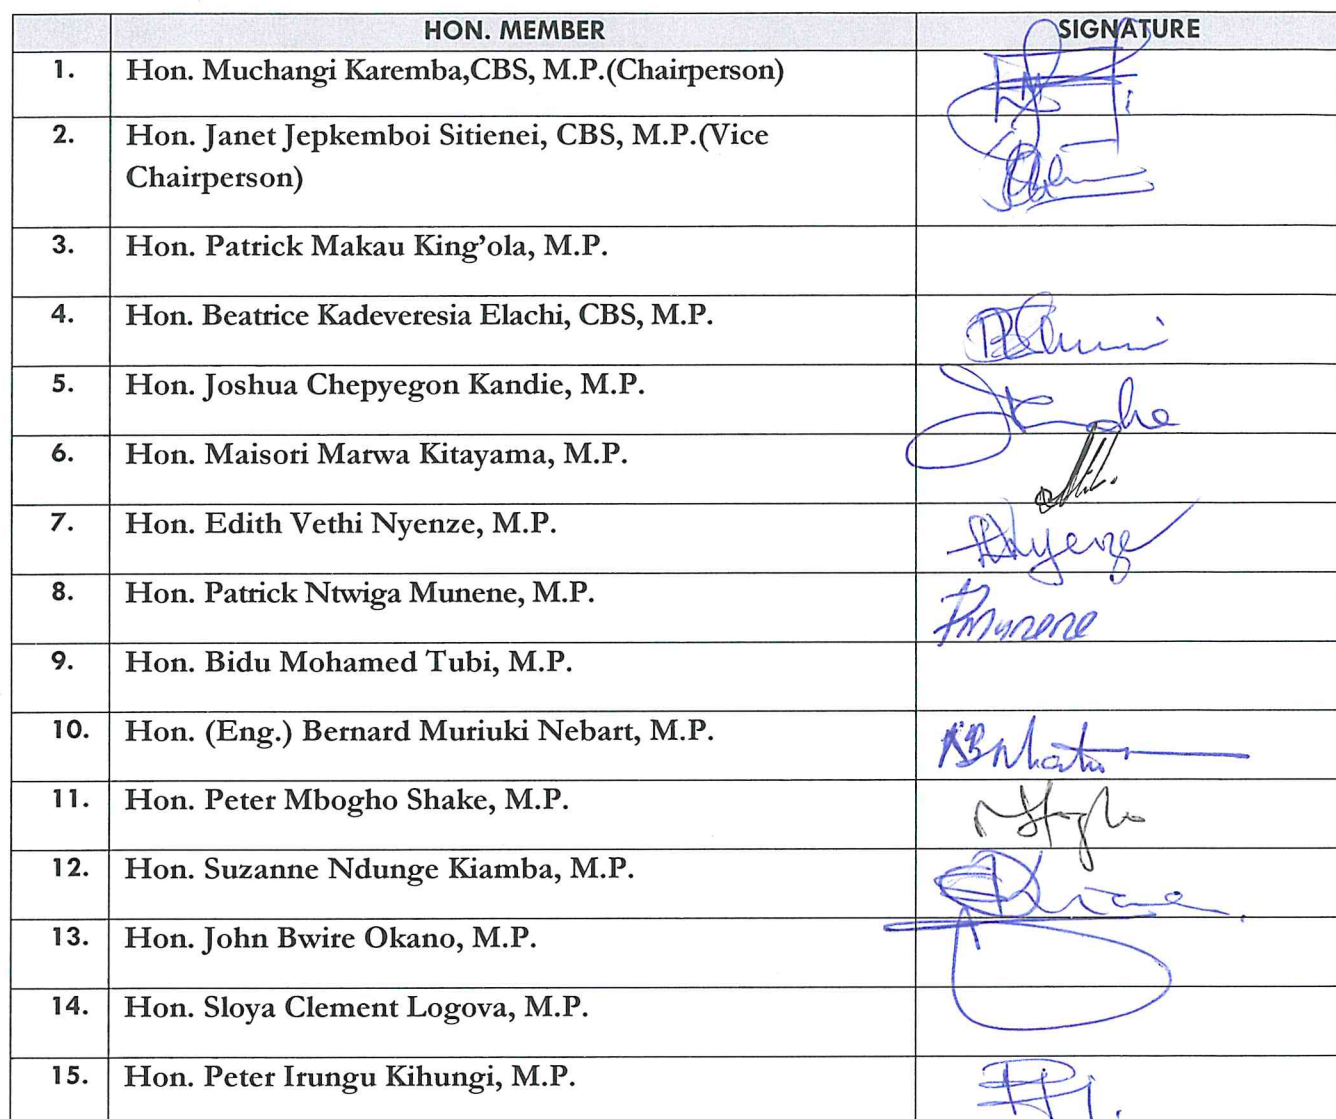 HON. MEMBER SIGNATURE
1. Hon. Muchangi Karemba,CBS, M.P.(Chairperson)
2. Hon. Janet Jepkemboi Sitienei, CBS, M.P.(Vice
Chairperson)
3. Hon. Patrick Makau King’ola, M.P.
4. Hon. Beatrice Kadeveresia Elachi, CBS, M.P.
5. Hon. Joshua Chepyegon Kandie, M.P.
6. Hon. Maisori Marwa Kitayama, M.P.
7. Hon. Edith Vethi Nyenze, M.P. Nyenze
8. Hon. Patrick Ntwiga Munene, M.P. PMunene
9. Hon. Bidu Mohamed Tubi, M.P.
10. Hon. (Eng.) Bernard Muriuki Nebart, M.P.
11. Hon. Peter Mbogho Shake, M.P.
12. Hon. Suzanne Ndunge Kiamba, M.P.
13. Hon. John Bwire Okano, M.P.
14. Hon. Sloya Clement Logova, M.P.
15. Hon. Peter Irungu Kihungi, M.P.